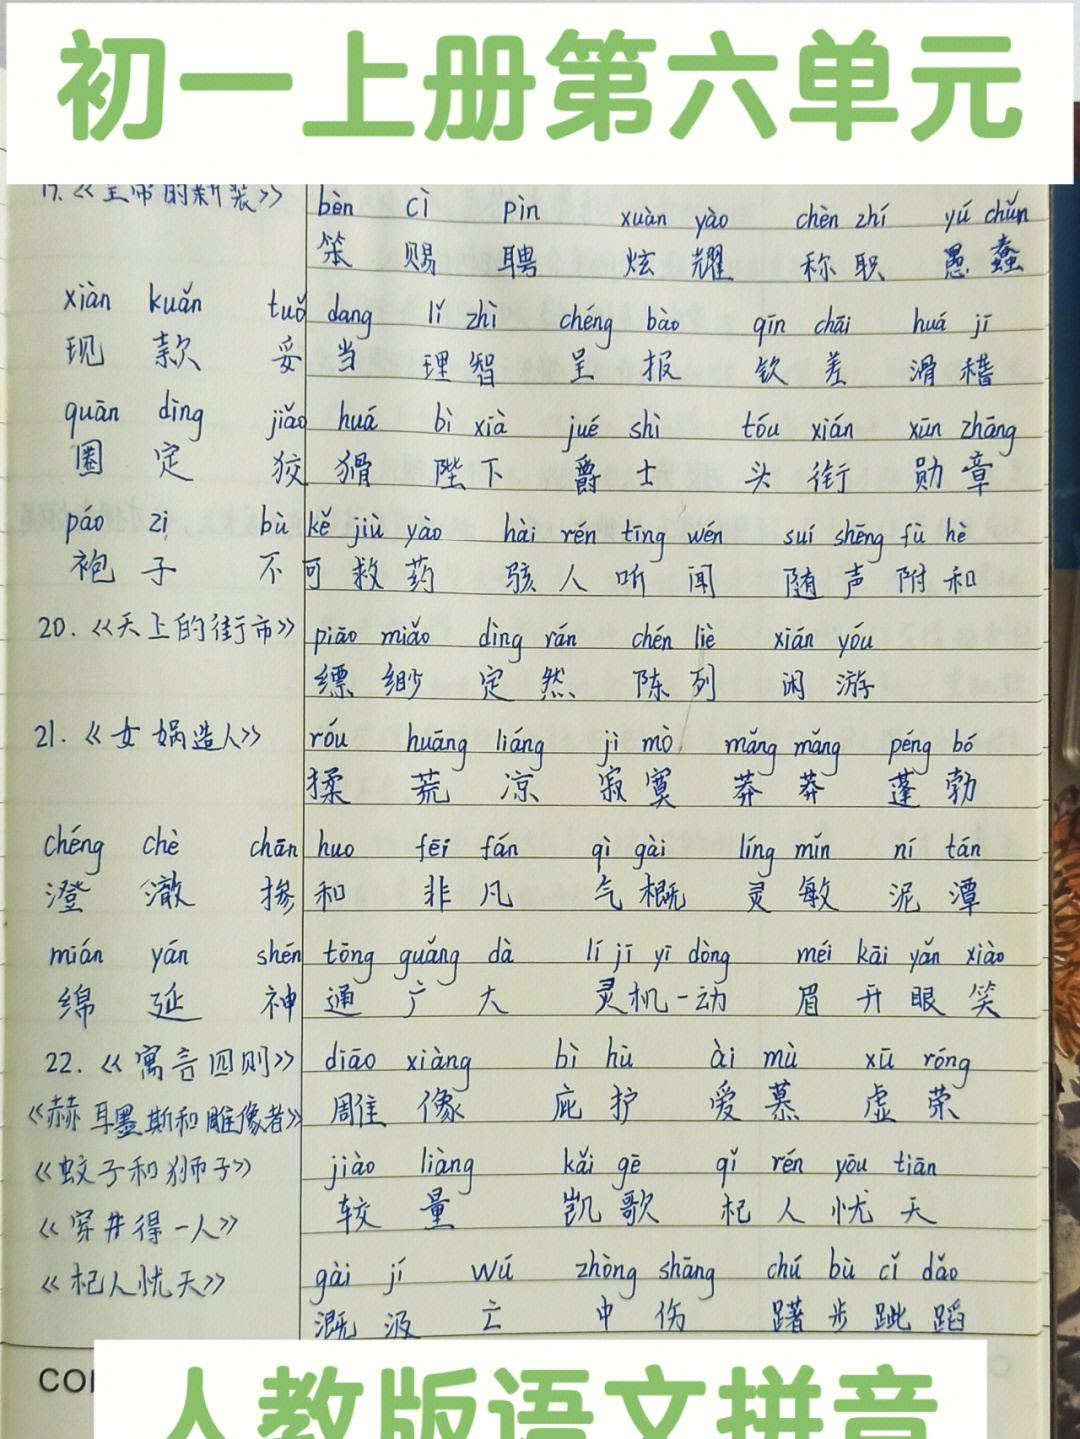 初一上册第六单元
19.《皇帝的新装》 bèn cì pìn xuàn yào chèn zhí yú chǔn
笨 赐 聘 炫耀 称职 愚蠢
xiàn kuǎn tuǒ dang lǐ zhì chéng bào qīn chāi huá jī
现款 妥当 理智 呈报 钦差 滑稽
quān dìng jiǎo huá bì xià jué shì tóu xián xūn zhāng
圈定 狡猾 陛下 爵士 头衔 勋章
páo zi bù kě jiù yào hài rén tīng wén suí shēng fù hè
袍子 不可救药 骇人听闻 随声附和
20.《天上的街市》 piāo miǎo dìng rán chén liè xián yóu
缥缈 定然 陈列 闲游
21.《女娲造人》 róu huāng liáng jì mò mǎng mǎng péng bó
揉 荒凉 寂寞 莽莽 蓬勃
chéng chè chān huo fēi fán qì gài líng mín ní tán
澄澈 掺和 非凡 气概 灵敏 泥潭
mián yán shén tōng guǎng dà lí jī yī dòng méi kāi yǎn xiào
绵延 神通广大 灵机一动 眉开眼笑
22.《寓言四则》 diāo xiàng bì hù ài mù xū róng
《赫耳墨斯和雕像者》 雕像 庇护 爱慕 虚荣
《蚊子和狮子》 jiào liàng kǎi gē qǐ rén yōu tiān
《穿井得一人》 较量 凯歌 杞人忧天
《杞人忧天》 gài jí wú zhòng shāng chú bù cǐ dǎo
溉汲 亡 中伤 躇步跐蹈
人教版语文拼音